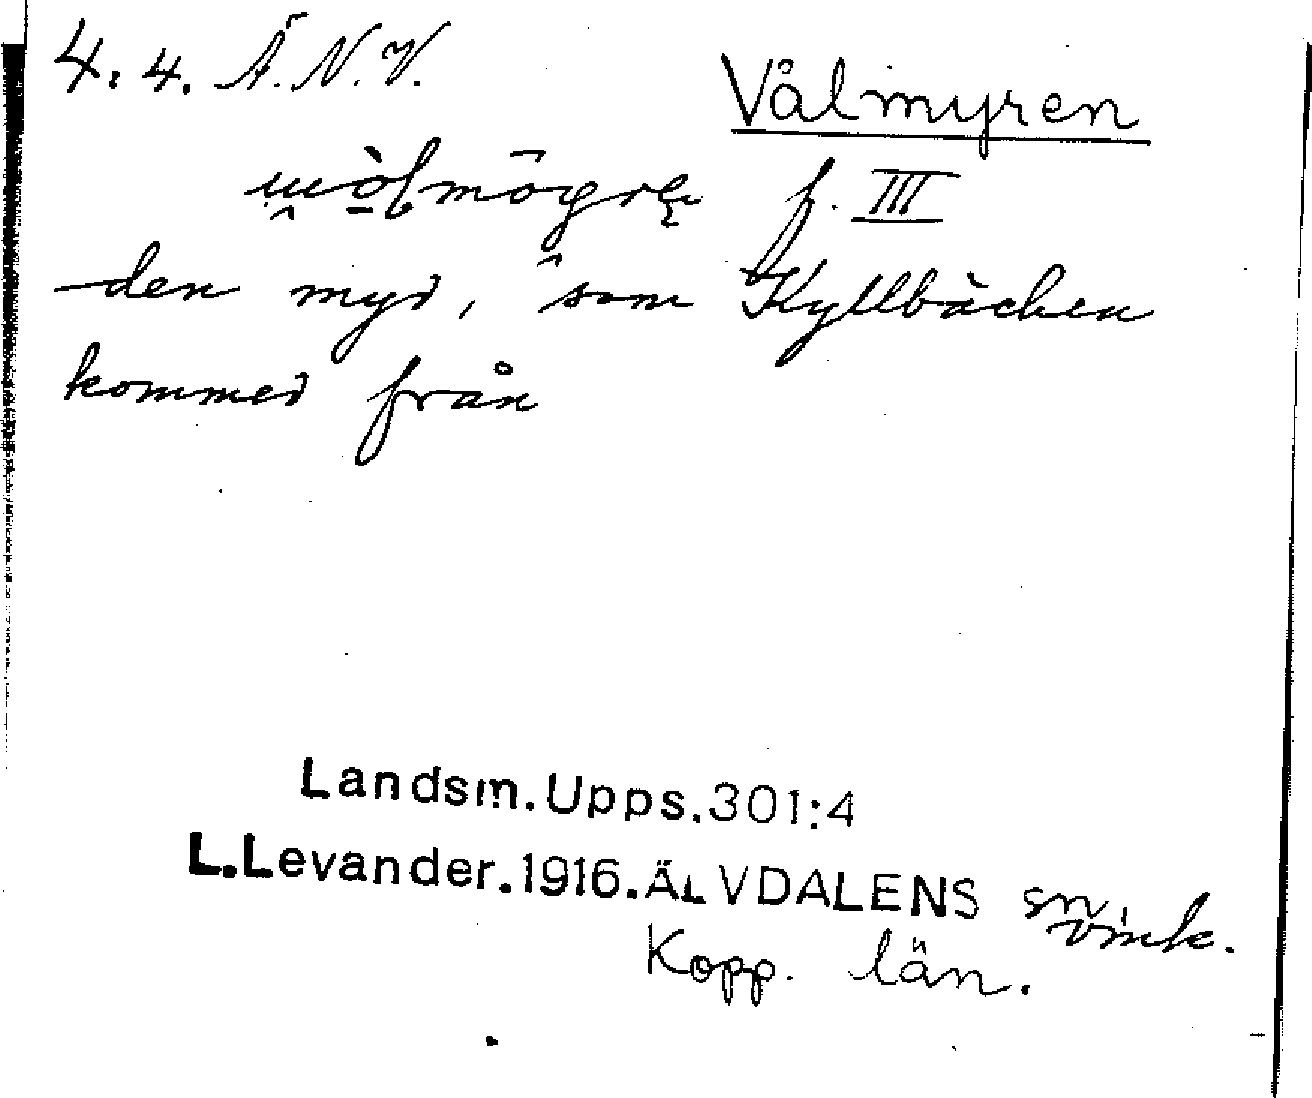 4. 4. Ä. N. V.
Vålmyren
f. III
den myr, som Kyllbäcken
kommer från
Landsm. Upps. 301:4
L. Levander. 1916. ÄLVDALENS sn.
Kopp. län.